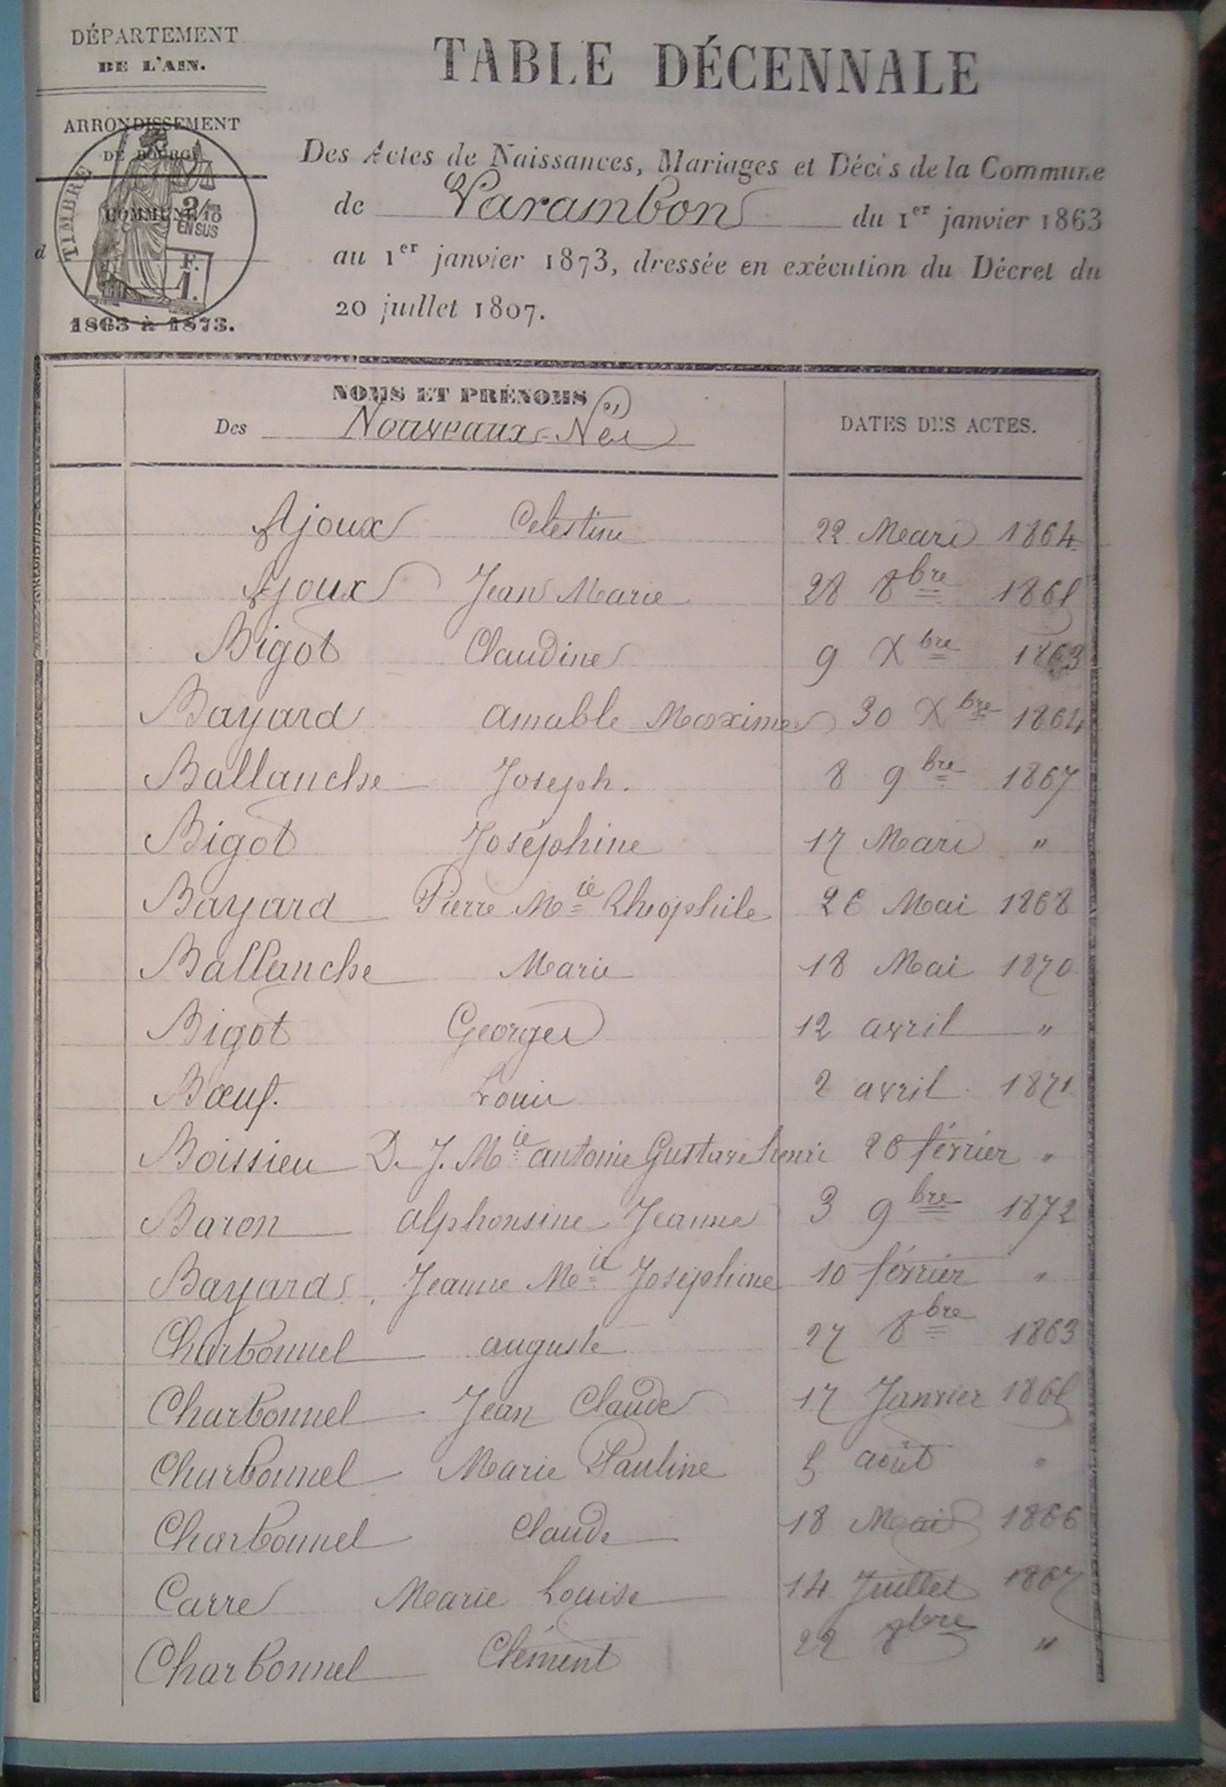 DÉPARTEMENT
DE L'AIN.
ARRONDISSEMENT
DE BOURG
COMMUNE
d
TIMBRE
2/10
EN SUS
F.
1.
1863 à 1873.
TABLE DÉCENNALE
Des Actes de Naissances, Mariages et Décès de la Commune
de Varambon du 1er janvier 1863
au 1er janvier 1873, dressée en exécution du Décret du
20 juillet 1807.
NOMS ET PRÉNOMS
Des Nouveaux-Nés
DATES DES ACTES.
Ajoux Celestine 22 Mars 1864
Ajoux Jean Marie 28 8bre 1865
Bigot Claudine 9 Xbre 1863
Bayard amable Maxime 30 Xbre 1864
Ballanche Joseph. 8 9bre 1867
Bigot Joséphine 17 Mars "
Bayard Pierre Mie Théophile 26 Mai 1868
Ballanche Marie 18 Mai 1870
Bigot Georges 12 avril "
Bœuf. Louis 2 avril 1871
Boissieu D. J. Mie antoine Gustave henri 28 février "
Baron alphonsine Jeanne 3 9bre 1872
Bayard Jeanne Mie Joséphine 10 février "
Charbonnel auguste 27 8bre 1863
Charbonnel Jean Claude 17 Janvier 1865
Charbonnel Marie Pauline 5 août "
Charbonnel Claude 18 Mai 1866
Carre Marie Louise 14 Juillet 1867
Charbonnel Clément 22 9bre "